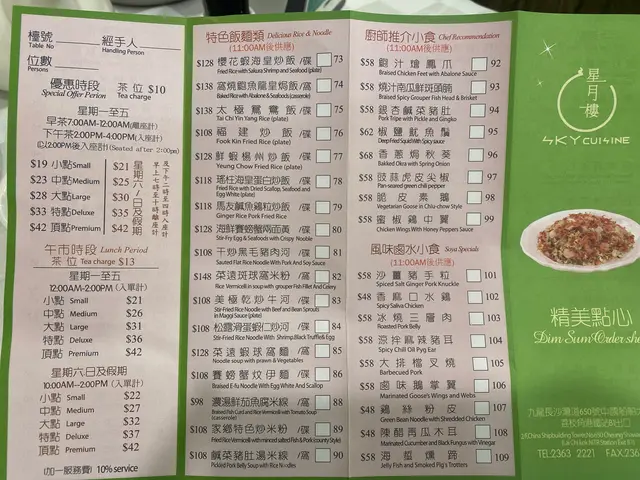 檯號 經手人
Table No Handling Person
位數
Persons
優惠時段 茶位 $10
Special Offer Perion Tea charge
星期一至五
早茶7:00AM-12:00AM(離座計)
下午茶2:00PM-4:00PM(入座計)
(2:00PM後入座計)(Seated after 2:00pm)
$19 小點 Small $21
$23 中點 Medium $25
$28 大點 Large $30
$33 特點 Deluxe $35
$42 頂點 Premium $42
星期六/日及假期
早上七時至十時離座計
及下午二時至四時入座計
午市時段 Lunch Period
茶位 Tea charge $13
星期一至五
12:00AM-2:00PM (入單計)
小點 Small $21
中點 Medium $26
大點 Large $31
特點 Deluxe $36
頂點 Premium $42
星期六日及假期
10:00AM-2:00PM (入單計)
小點 Small $22
中點 Medium $27
大點 Large $32
特點 Deluxe $37
頂點 Premium $42
(加一服務費) 10% service
特色飯麵類 Delicious Rice & Noodle
(11:00AM後供應)
$128 櫻花蝦海皇炒飯 /碟 73
Fried Rice with Sakura Shrimp and Seafood (plate)
$138 窩燒鮑魚龍皇焗飯/窩 74
Baked Rice with Abalone & Seafoods (casserole)
$138 太極鴛鴦飯/碟 75
Tai Chi Yin Yang Rice (plate)
$108 福建炒飯 /碟 76
Fook Kin Fried Rice (plate)
$128 鮮蝦楊州炒飯 /碟 77
Yeung Chow Fried Rice (plate)
$118 瑤柱海皇蛋白炒飯/碟 78
Fried Rice with Dried Scallop, Seafood and
Egg White (plate)
$118 馬友鹹魚雞粒炒飯/碟 79
Ginger Rice Pork Fried Rice
$128 海鮮賽螃蟹兩面黃/碟 80
Stir-Fry Egg & Seafoods with Crispy Nooble
$108 干炒黑毛豬肉河/碟 81
Sauted Flat Rice Noodle With Pork And Soy Sauce
$148 菜遠斑球窩米粉/窩 82
Rice Vermicelli in soup with grouper Fish Fillet And Celery
$108 美極乾炒牛河 /碟 83
Stir-Fried Rice Noodle with Beef and Bean Sprouts
in Maggi Sauce (plate)
$108 松露滑蛋蝦仁炒河/碟 84
Stir-Fried Rice Noodle with Shrimp.Black Truffle& Egg
$128 菜遠蝦球窩麵/窩 85
Noodle soup with prawn & Vegetables
$108 賽螃蟹炆伊麵 /碟 86
Braised E-fu Noodle With Egg White And Scallop
$98 濃湯鮮茄魚腐米線/窩 88
Braised Fish Curd and Rice Vermicelli with Tomato Soup
(casserole)
$108 家鄉特色炒米粉/碟 89
Fried Rice Vermicelli with minced salted Fish & Pork(county Style)
$108 鹹菜豬肚湯米線/窩 90
Pickled Pork Belly Soup with Rice Noodles
廚師推介小食 Chef Recommendation
(11:00AM後供應)
$58 鮑汁燴鳳爪 92
Braised Chicken Feet with Abalone Sauce
$58 燒汁南瓜鮮斑頭腩 93
Braised Spicy Grouper Fish Head & Brisket
$58 銀杏鹹菜豬肚 94
Pork Tripe with Pickle and Gingko
$62 椒鹽魷魚鬚 95
Deep Fried Squid With Spicy sauce
$68 香蔥焗秋葵 96
Bakded Okra with Spring Onion
$58 豉蒜虎皮尖椒 97
Pan-seared green chili pepper
$58 脆皮素鵝 98
Vegetarian Goose in Chiu-chow Style
$58 蜜椒雞中翼 99
Chicken Wings With Honey Peppers Sauce
風味鹵水小食 Soya Specials
(11:00AM後供應)
$58 沙薑豬手粒 101
Spiced Salt Ginger Pork Knuckle
$48 香麻口水雞 102
Spicy Saliva Chicken
$58 冰燒三層肉 103
Roasted Pork Belly
$58 涼拌麻辣豬耳 104
Spicy Chili Oil Pyg Ear
$58 大排檔叉燒 105
Barbecued Pork
$58 鹵味鵝掌翼 106
Marinated Goose's Wings and Webs
$48 雞絲粉皮 107
Green Bean Noodle with Shredded Chicken
$48 陳醋青瓜木耳 108
Marinated Cucumber and Black Fungus with Vinegar
$58 海蜇燻蹄 109
Jelly Fish and Smoked Pig's Trotters
星月樓
SKY CUISINE
精美點心
Dim Sum Order she
九龍長沙灣道650號中國船舶
荔枝角港鐵站B1出口
TEL:2363 2221 FAX:236